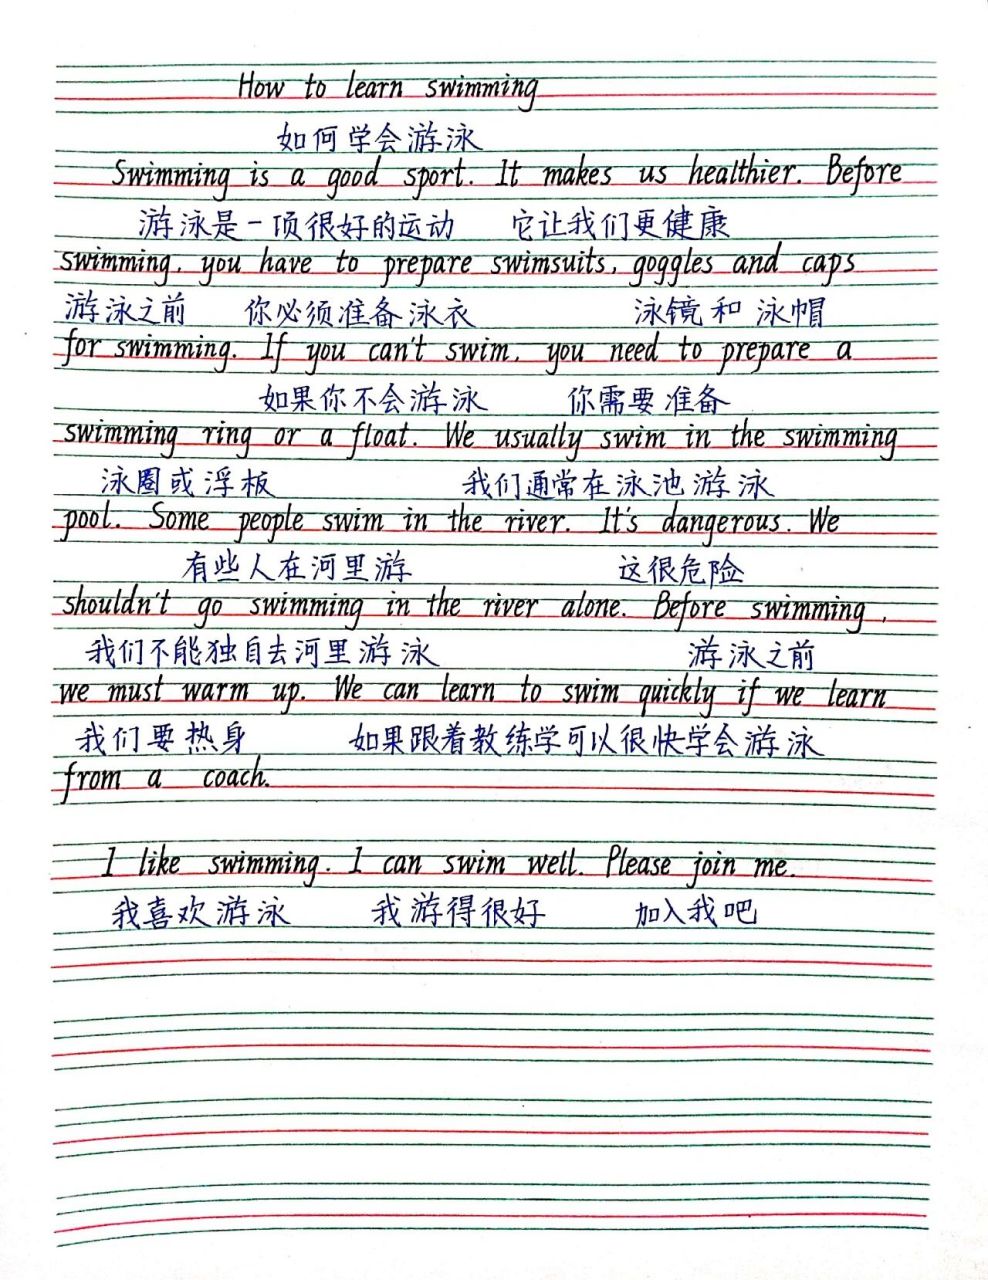 How to learn swimming
如何学会游泳
Swimming is a good sport. It makes us healthier. Before
游泳是一项很好的运动 它让我们更健康
swimming, you have to prepare swimsuits, goggles and caps
游泳之前 你必须准备泳衣 泳镜和泳帽
for swimming. If you can't swim, you need to prepare a
如果你不会游泳 你需要准备
swimming ring or a float. We usually swim in the swimming
泳圈或浮板 我们通常在泳池游泳
pool. Some people swim in the river. It's dangerous. We
有些人在河里游 这很危险
shouldn't go swimming in the river alone. Before swimming,
我们不能独自去河里游泳 游泳之前
we must warm up. We can learn to swim quickly if we learn
我们要热身 如果跟着教练学可以很快学会游泳
from a coach.
I like swimming. I can swim well. Please join me.
我喜欢游泳 我游得很好 加入我吧